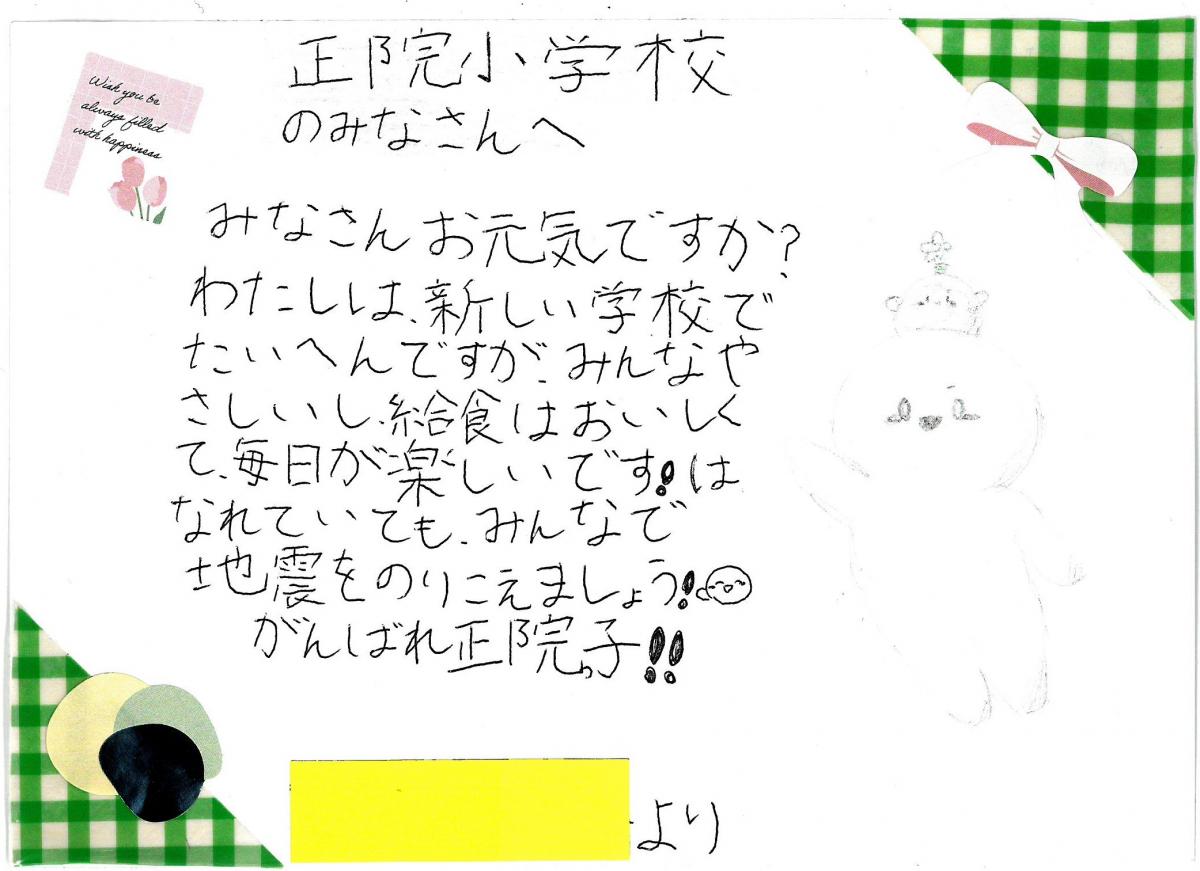 Wish you be
always filled
with happiness
正院小学校
のみなさんへ
みなさんお元気ですか?
わたしは、新しい学校で
たいへんですが、みんなや
さしいし、給食はおいしく
て、毎日が楽しいです!は
なれていても、みんなで
地震をのりこえましょう!
がんばれ正院っ子!!
より